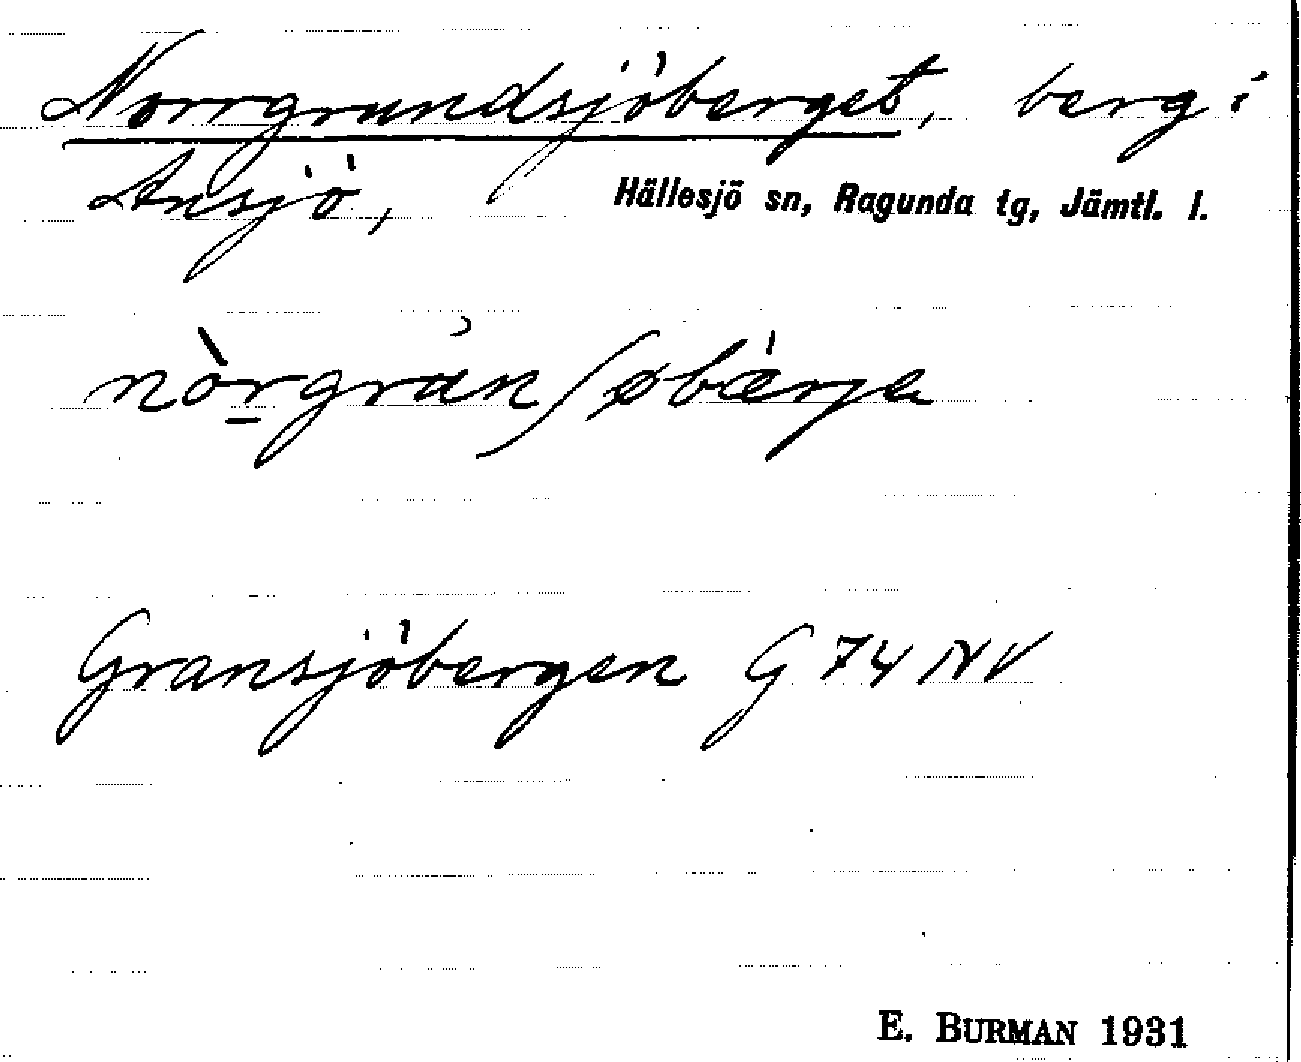 Norrgrundsjöberget, berg i
Ansjö, Hällesjö sn, Ragunda tg, Jämtl. l.
Gransjöbergen G 74 NV
E. BURMAN 1931